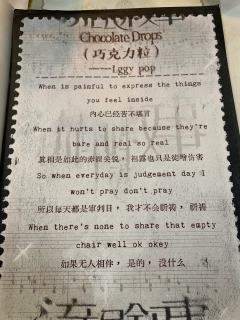 Chocolate Drops
(巧克力粒)
——Lggy pop
When is painful to express the things
you feel inside
内心已经苦不堪言
When it hurts to share because they're
bare and real so real
真相是如此的赤裸尖锐，袒露也只是徒增伤害
So when everyday is judgement day I
won't pray don't pray
所以每天都是审判日，我才不会祈祷，祈祷
When there's none to share that empty
chair well ok okey
如果无人相伴，是的，没什么